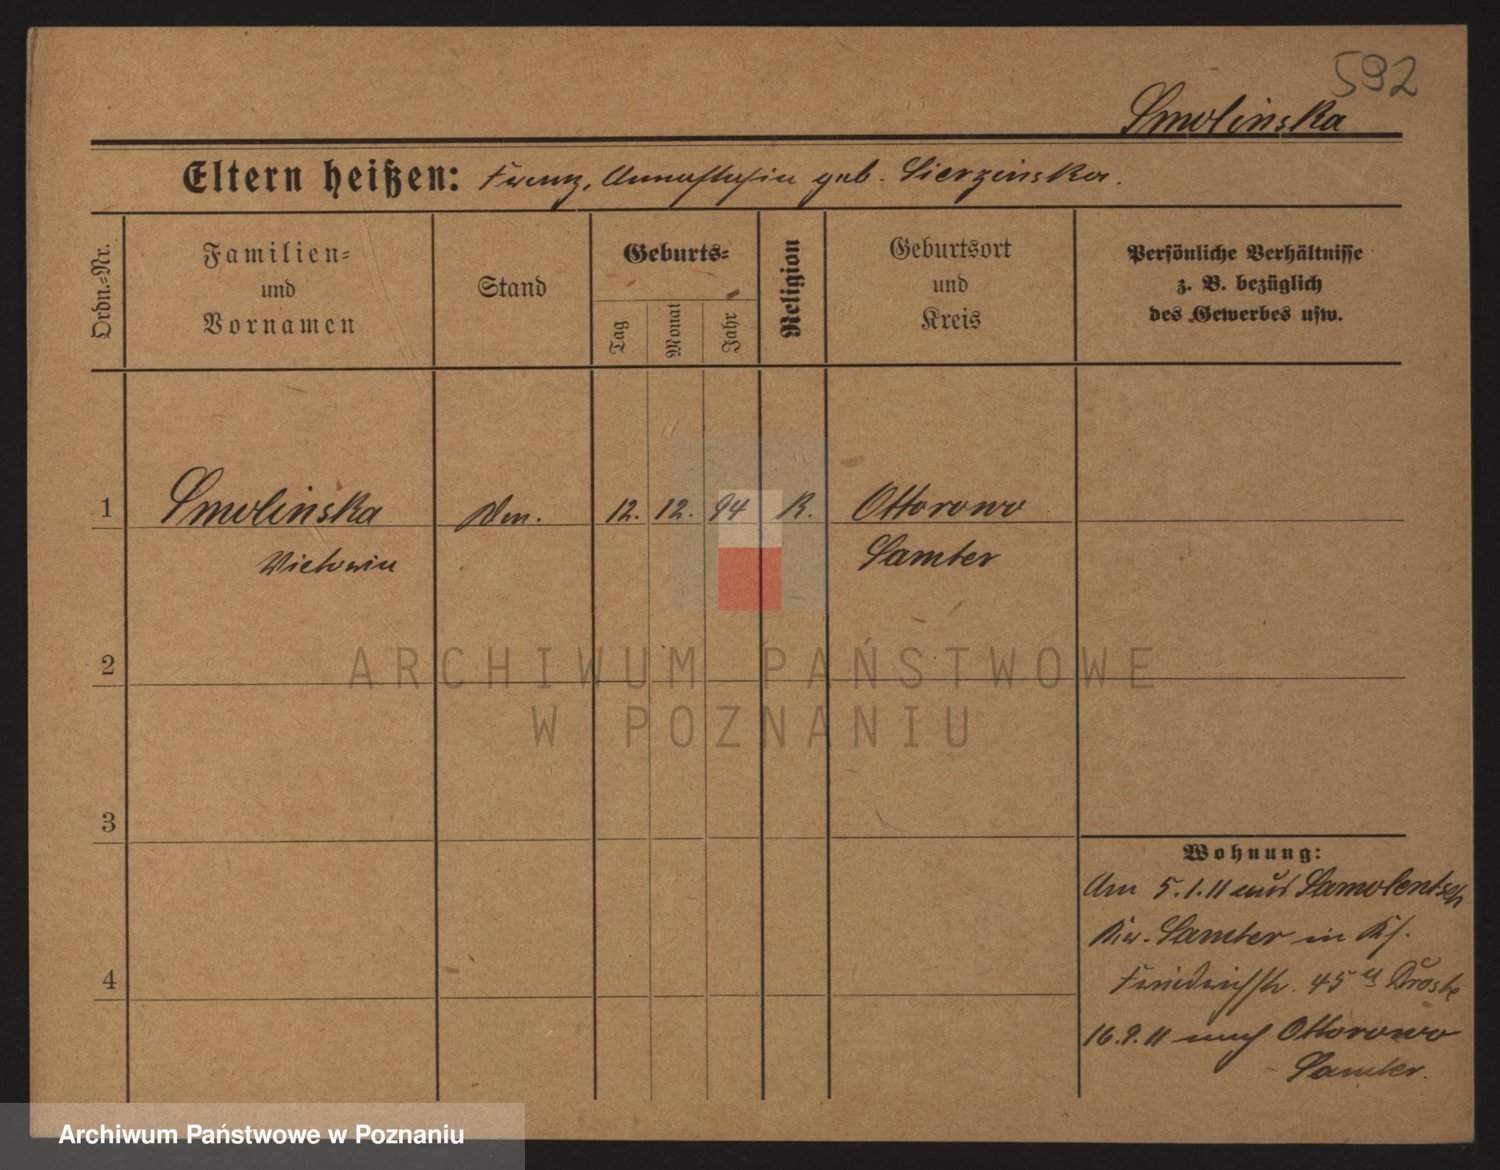 592
Smolinska
Eltern heißen: Franz, Annastasia geb. Sierzinska.
Ordn.=Nr.
Familien=
und
Vornamen
Stand
Geburts=
Tag
Monat
Jahr
Religion
Geburtsort
und
Kreis
Persönliche Verhältnisse
z. B. bezüglich
des Gewerbes usw.
1 Smolinska 12. 12. 94 K. Ottorowo
Victoria Samter
2
3
4
Wohnung:
Am 5.1.11 aus Samolentsch
Kr. Samter in
Friedrichstr. 45 II Droste
16.9.11 nach Ottorowo
Samter.
ARCHIWUM PAŃSTWOWE
W POZNANIU
Archiwum Państwowe w Poznaniu